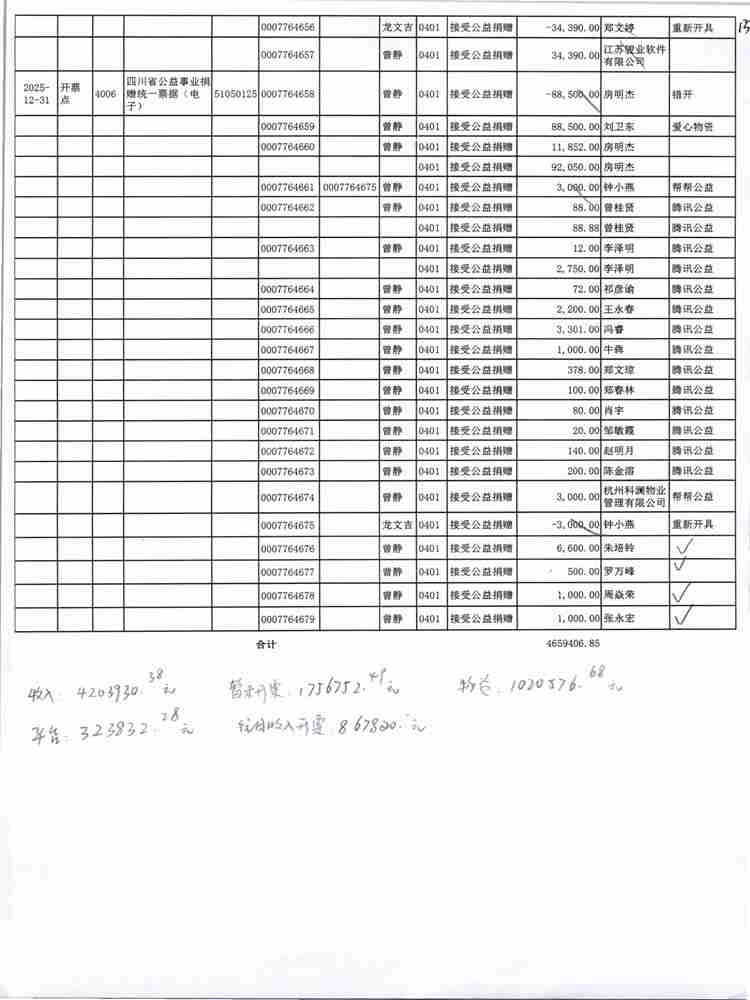 0007764656 龙文吉 0401 接受公益捐赠 -34,390.00 郑文婷 重新开具
0007764657 曾静 0401 接受公益捐赠 34,390.00 江苏骏业软件有限公司
2025-12-31 开票点 4006 四川省公益事业捐赠统一票据（电子） 51050125 0007764658 曾静 0401 接受公益捐赠 -88,500.00 房明杰 错开
0007764659 曾静 0401 接受公益捐赠 88,500.00 刘卫东 爱心物资
0007764660 曾静 0401 接受公益捐赠 11,852.00 房明杰
0401 接受公益捐赠 92,050.00 房明杰
0007764661 0007764675 曾静 0401 接受公益捐赠 3,000.00 钟小燕 帮帮公益
0007764662 曾静 0401 接受公益捐赠 88.00 曾桂贤 腾讯公益
0401 接受公益捐赠 88.88 曾桂贤 腾讯公益
0007764663 曾静 0401 接受公益捐赠 12.00 李泽明 腾讯公益
0401 接受公益捐赠 2,750.00 李泽明 腾讯公益
0007764664 曾静 0401 接受公益捐赠 72.00 祁彦谕 腾讯公益
0007764665 曾静 0401 接受公益捐赠 2,200.00 王永春 腾讯公益
0007764666 曾静 0401 接受公益捐赠 3,301.00 冯睿 腾讯公益
0007764667 曾静 0401 接受公益捐赠 1,000.00 牛犇 腾讯公益
0007764668 曾静 0401 接受公益捐赠 378.00 郑文琼 腾讯公益
0007764669 曾静 0401 接受公益捐赠 100.00 郑春林 腾讯公益
0007764670 曾静 0401 接受公益捐赠 80.00 肖宇 腾讯公益
0007764671 曾静 0401 接受公益捐赠 20.00 邹敏霞 腾讯公益
0007764672 曾静 0401 接受公益捐赠 140.00 赵明月 腾讯公益
0007764673 曾静 0401 接受公益捐赠 200.00 陈金溶 腾讯公益
0007764674 曾静 0401 接受公益捐赠 3,000.00 杭州科澜物业管理有限公司 帮帮公益
0007764675 龙文吉 0401 接受公益捐赠 -3,000.00 钟小燕 重新开具
0007764676 曾静 0401 接受公益捐赠 6,600.00 朱培铃 ✓
0007764677 曾静 0401 接受公益捐赠 500.00 罗万峰 ✓
0007764678 曾静 0401 接受公益捐赠 1,000.00 周焱荣 ✓
0007764679 曾静 0401 接受公益捐赠 1,000.00 张永宏 ✓
合计 4659406.85
收入: 4203930.38元 暂未开票: 1756752.49元 物资: 1020576.68元
323832.28元 往年收入开票: 867820.-元